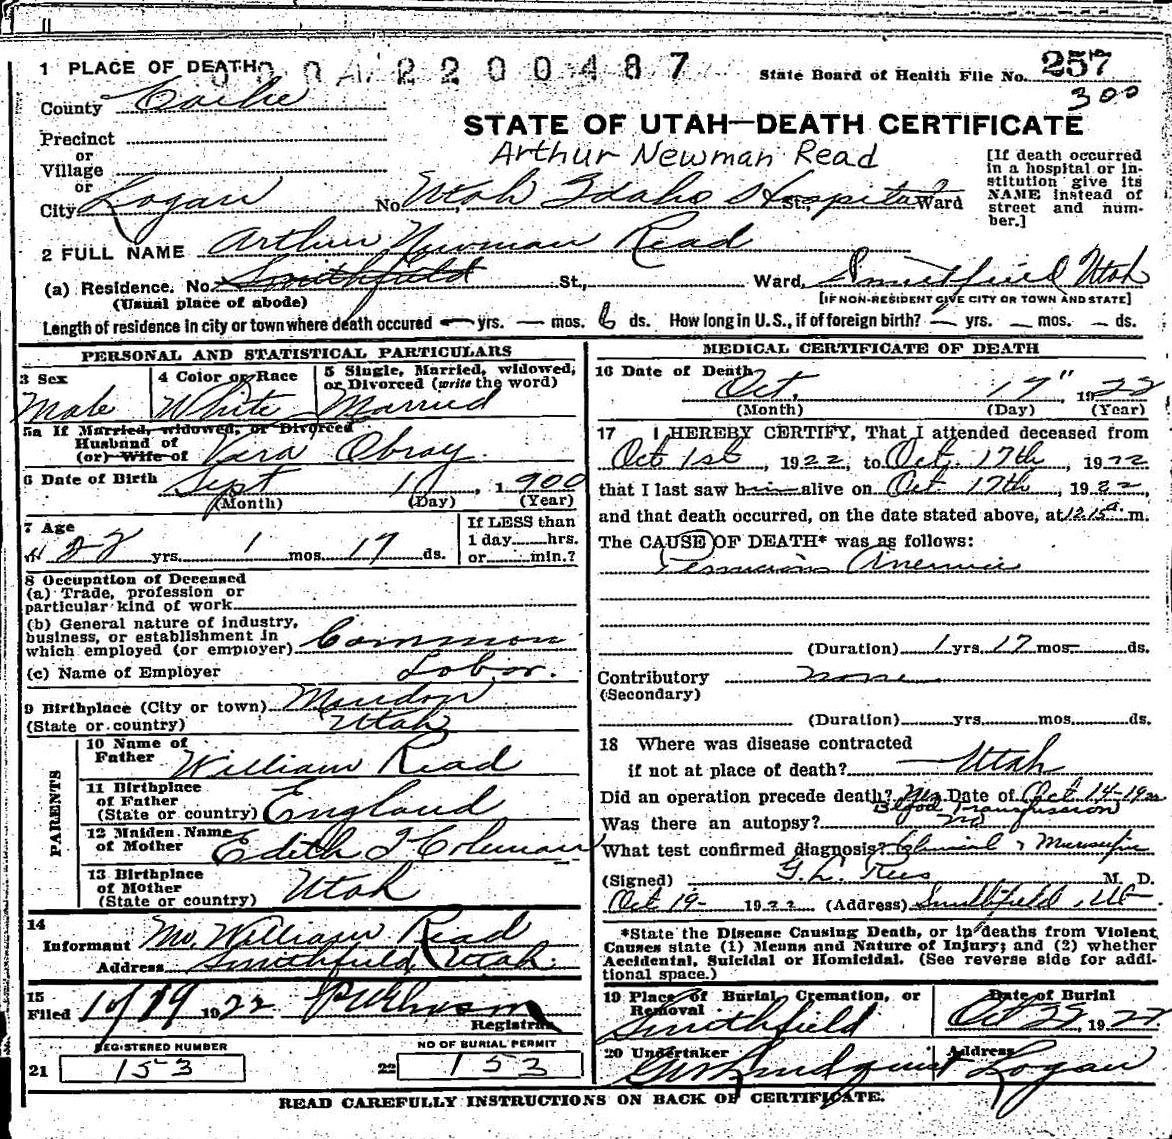 1 PLACE OF DEATH
000A2200487
State Board of Health File No. 257
300
County Cache
STATE OF UTAH—DEATH CERTIFICATE
Precinct
or
Village
or
Arthur Newman Read
[If death occurred
in a hospital or in-
stitution give its
NAME instead of
street and num-
ber.]
City Logan No. Utah Idaho Hospital St., Ward
2 FULL NAME Arthur Newman Read
(a) Residence. No. Smithfield St., Ward, Smithfield Utah
(Usual place of abode) [IF NON-RESIDENT GIVE CITY OR TOWN AND STATE]
Length of residence in city or town where death occured — yrs. — mos. 6 ds. How long in U.S., if of foreign birth? — yrs. — mos. — ds.
PERSONAL AND STATISTICAL PARTICULARS
3 Sex
Male
4 Color or Race
White
5 Single, Married, widowed,
or Divorced (write the word)
Married
5a If Married, widowed, or Divorced
Husband of
(or) Wife of Vera Obray
6 Date of Birth Sept 1 , 1900
(Month) (Day) (Year)
7 Age
22 yrs. 1 mos. 17 ds.
If LESS than
1 day hrs.
or min.?
8 Occupation of Deceased
(a) Trade, profession or
particular kind of work
(b) General nature of industry,
business, or establishment in
which employed (or employer) Common
(c) Name of Employer Labor.
9 Birthplace (City or town) Mendon
(State or country) Utah
PARENTS
10 Name of
Father William Read
11 Birthplace
of Father
(State or country) England
12 Maiden Name
of Mother Edith J Coleman
13 Birthplace
of Mother
(State or country) Utah
14
Informant Mr. William Read
Address Smithfield, Utah.
15
Filed 10/19 1922
Registrar
REGISTERED NUMBER
21 153
NO OF BURIAL PERMIT
22 153
MEDICAL CERTIFICATE OF DEATH
16 Date of Death Oct, 17" 1922
(Month) (Day) (Year)
17 I HEREBY CERTIFY, That I attended deceased from
Oct 1st , 1922, to Oct. 17th , 1922
that I last saw him alive on Oct. 17th , 1922,
and that death occurred, on the date stated above, at 12.15 a. m.
The CAUSE OF DEATH* was as follows:
Pernicious Anemia
(Duration) 1 yrs. 17 mos. ds.
Contributory none
(Secondary)
(Duration) yrs. mos. ds.
18 Where was disease contracted
if not at place of death? Utah
Did an operation precede death? Yes Date of Oct 14-1922
Blood Transfussion
Was there an autopsy? No
What test confirmed diagnosis? Clinical & Microscopic
(Signed) G.L. Rees M. D.
Oct 19- 1922 (Address) Smithfield, Ut
*State the Disease Causing Death, or in deaths from Violent
Causes state (1) Means and Nature of Injury; and (2) whether
Accidental, Suicidal or Homicidal. (See reverse side for addi-
tional space.)
19 Place of Burial, Cremation, or
Removal
Smithfield
Date of Burial
Oct 22, 1922
20 Undertaker
Lindquist
Address
Logan
READ CAREFULLY INSTRUCTIONS ON BACK OF CERTIFICATE.